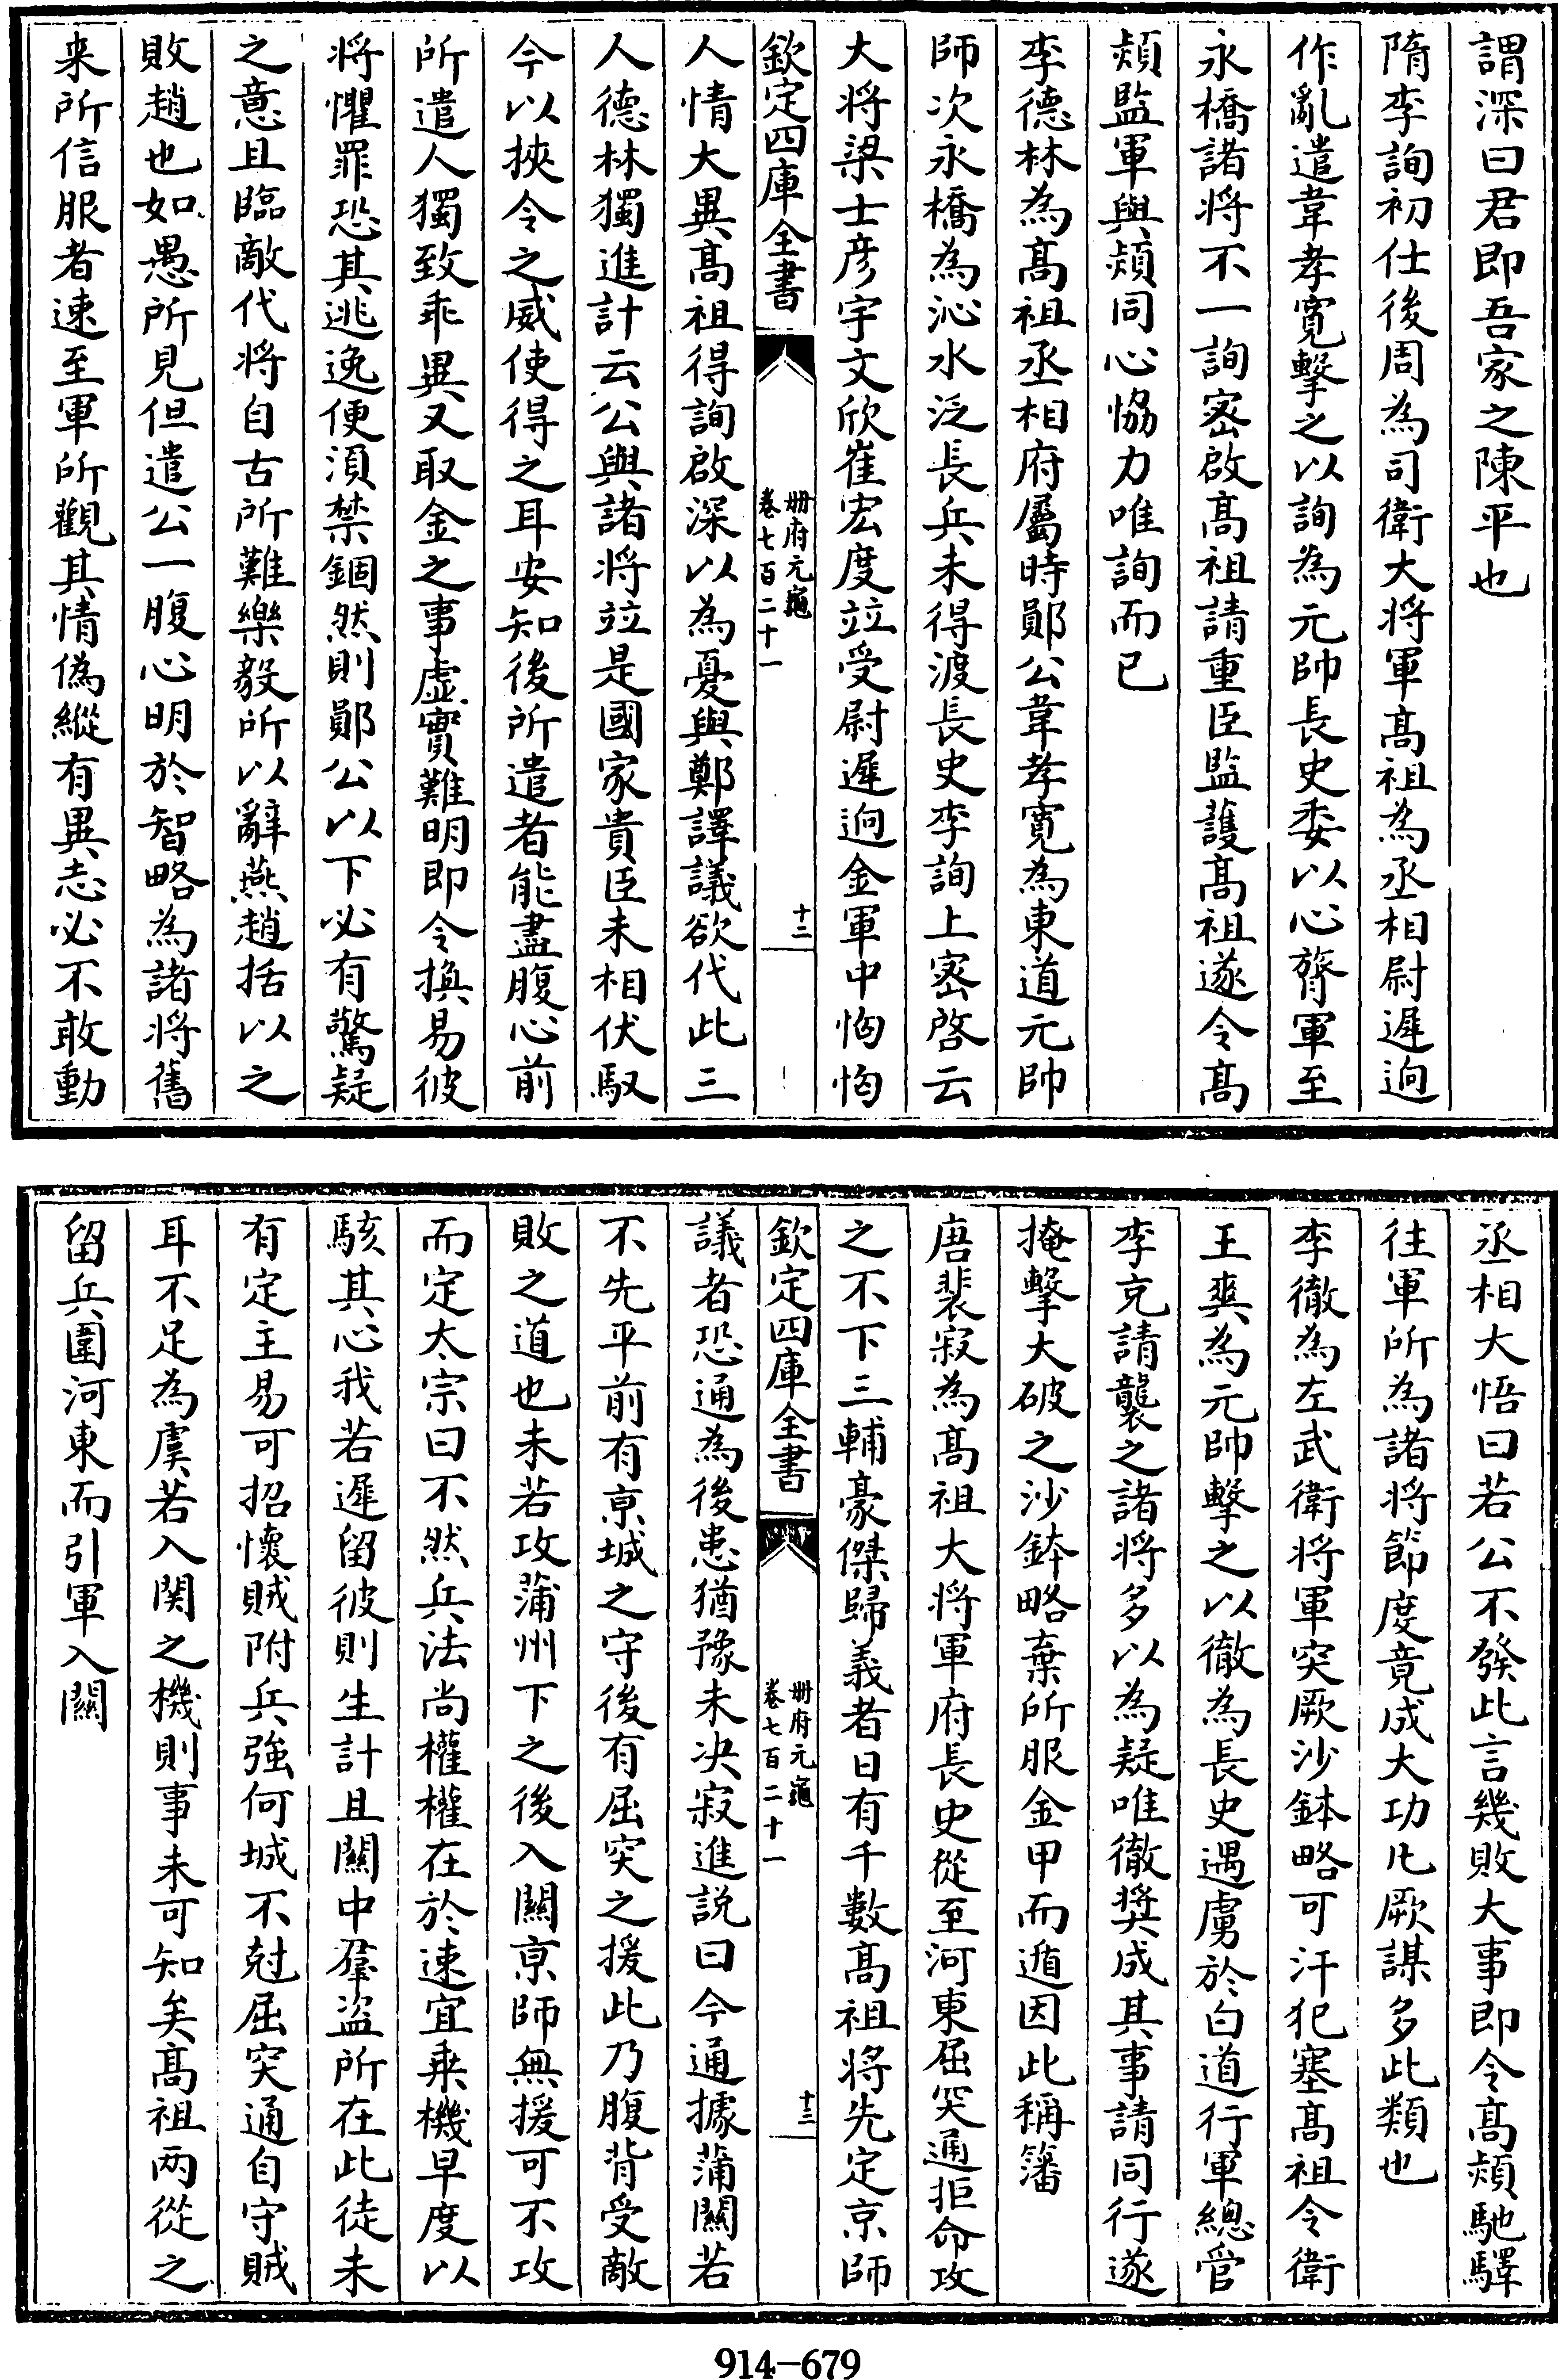 謂深曰君即吾家之陳平也
隋李詢初仕後周為司衛大將軍髙祖為丞相尉遲迥
作亂遣韋孝寛擊之以詢為元帥長史委以心膂軍至
永橋諸將不一詢宻啟髙祖請重臣監護髙祖遂令髙
熲監軍與熲同心恊力唯詢而已
李德林為髙祖丞相府屬時鄖公韋孝寛為東道元帥
師次永橋為沁水泛長兵未得渡長史李詢上宻啓云
大將梁士彦宇文欣崔宏度竝受尉遲迥金軍中恟恟
欽定四庫全書
冊府元龜
卷七百二十一
十二
人情大異髙祖得詢啟深以為憂與鄭譯議欲代此三
人德林獨進計云公與諸將竝是國家貴臣未相伏馭
今以挾令之威使得之耳安知後所遣者能盡腹心前
所遣人獨致乖異又取金之事虚實難明即令換易彼
將懼罪恐其逃逸便湏禁錮然則鄖公以下必有驚疑
之意且臨敵代將自古所難樂毅所以辭燕趙括以之
敗趙也如愚所見但遣公一腹心明於智略為諸將舊
来所信服者速至軍所觀其情偽縱有異志必不敢動
丞相大悟曰若公不發此言幾敗大事即令髙熲馳驛
往軍所為諸將節度竟成大功凡厥謀多此類也
李徹為左武衛將軍突厥沙鉢略可汗犯塞髙祖令衛
王爽為元帥擊之以徹為長史遇虜於白道行軍總管
李克請襲之諸將多以為疑唯徹奬成其事請同行遂
掩擊大破之沙鉢略棄所服金甲而遁因此稱籓
唐裴寂為髙祖大將軍府長史從至河東屈突通拒命攻
之不下三輔豪傑歸義者日有千數髙祖將先定京師
欽定四庫全書
冊府元龜
卷七百二十一
十三
議者恐通為後患猶豫未决寂進説曰今通據蒲關若
不先平前有京城之守後有屈突之援此乃腹背受敵
敗之道也未若攻蒲州下之後入關京師無援可不攻
而定太宗曰不然兵法尚權權在於速宜乗機早度以
駭其心我若遲留彼則生計且關中羣盗所在此徒未
有定主易可招懷賊附兵強何城不尅屈突通自守賊
耳不足為虞若入関之機則事未可知矣髙祖两從之
留兵圍河東而引軍入關
914-679